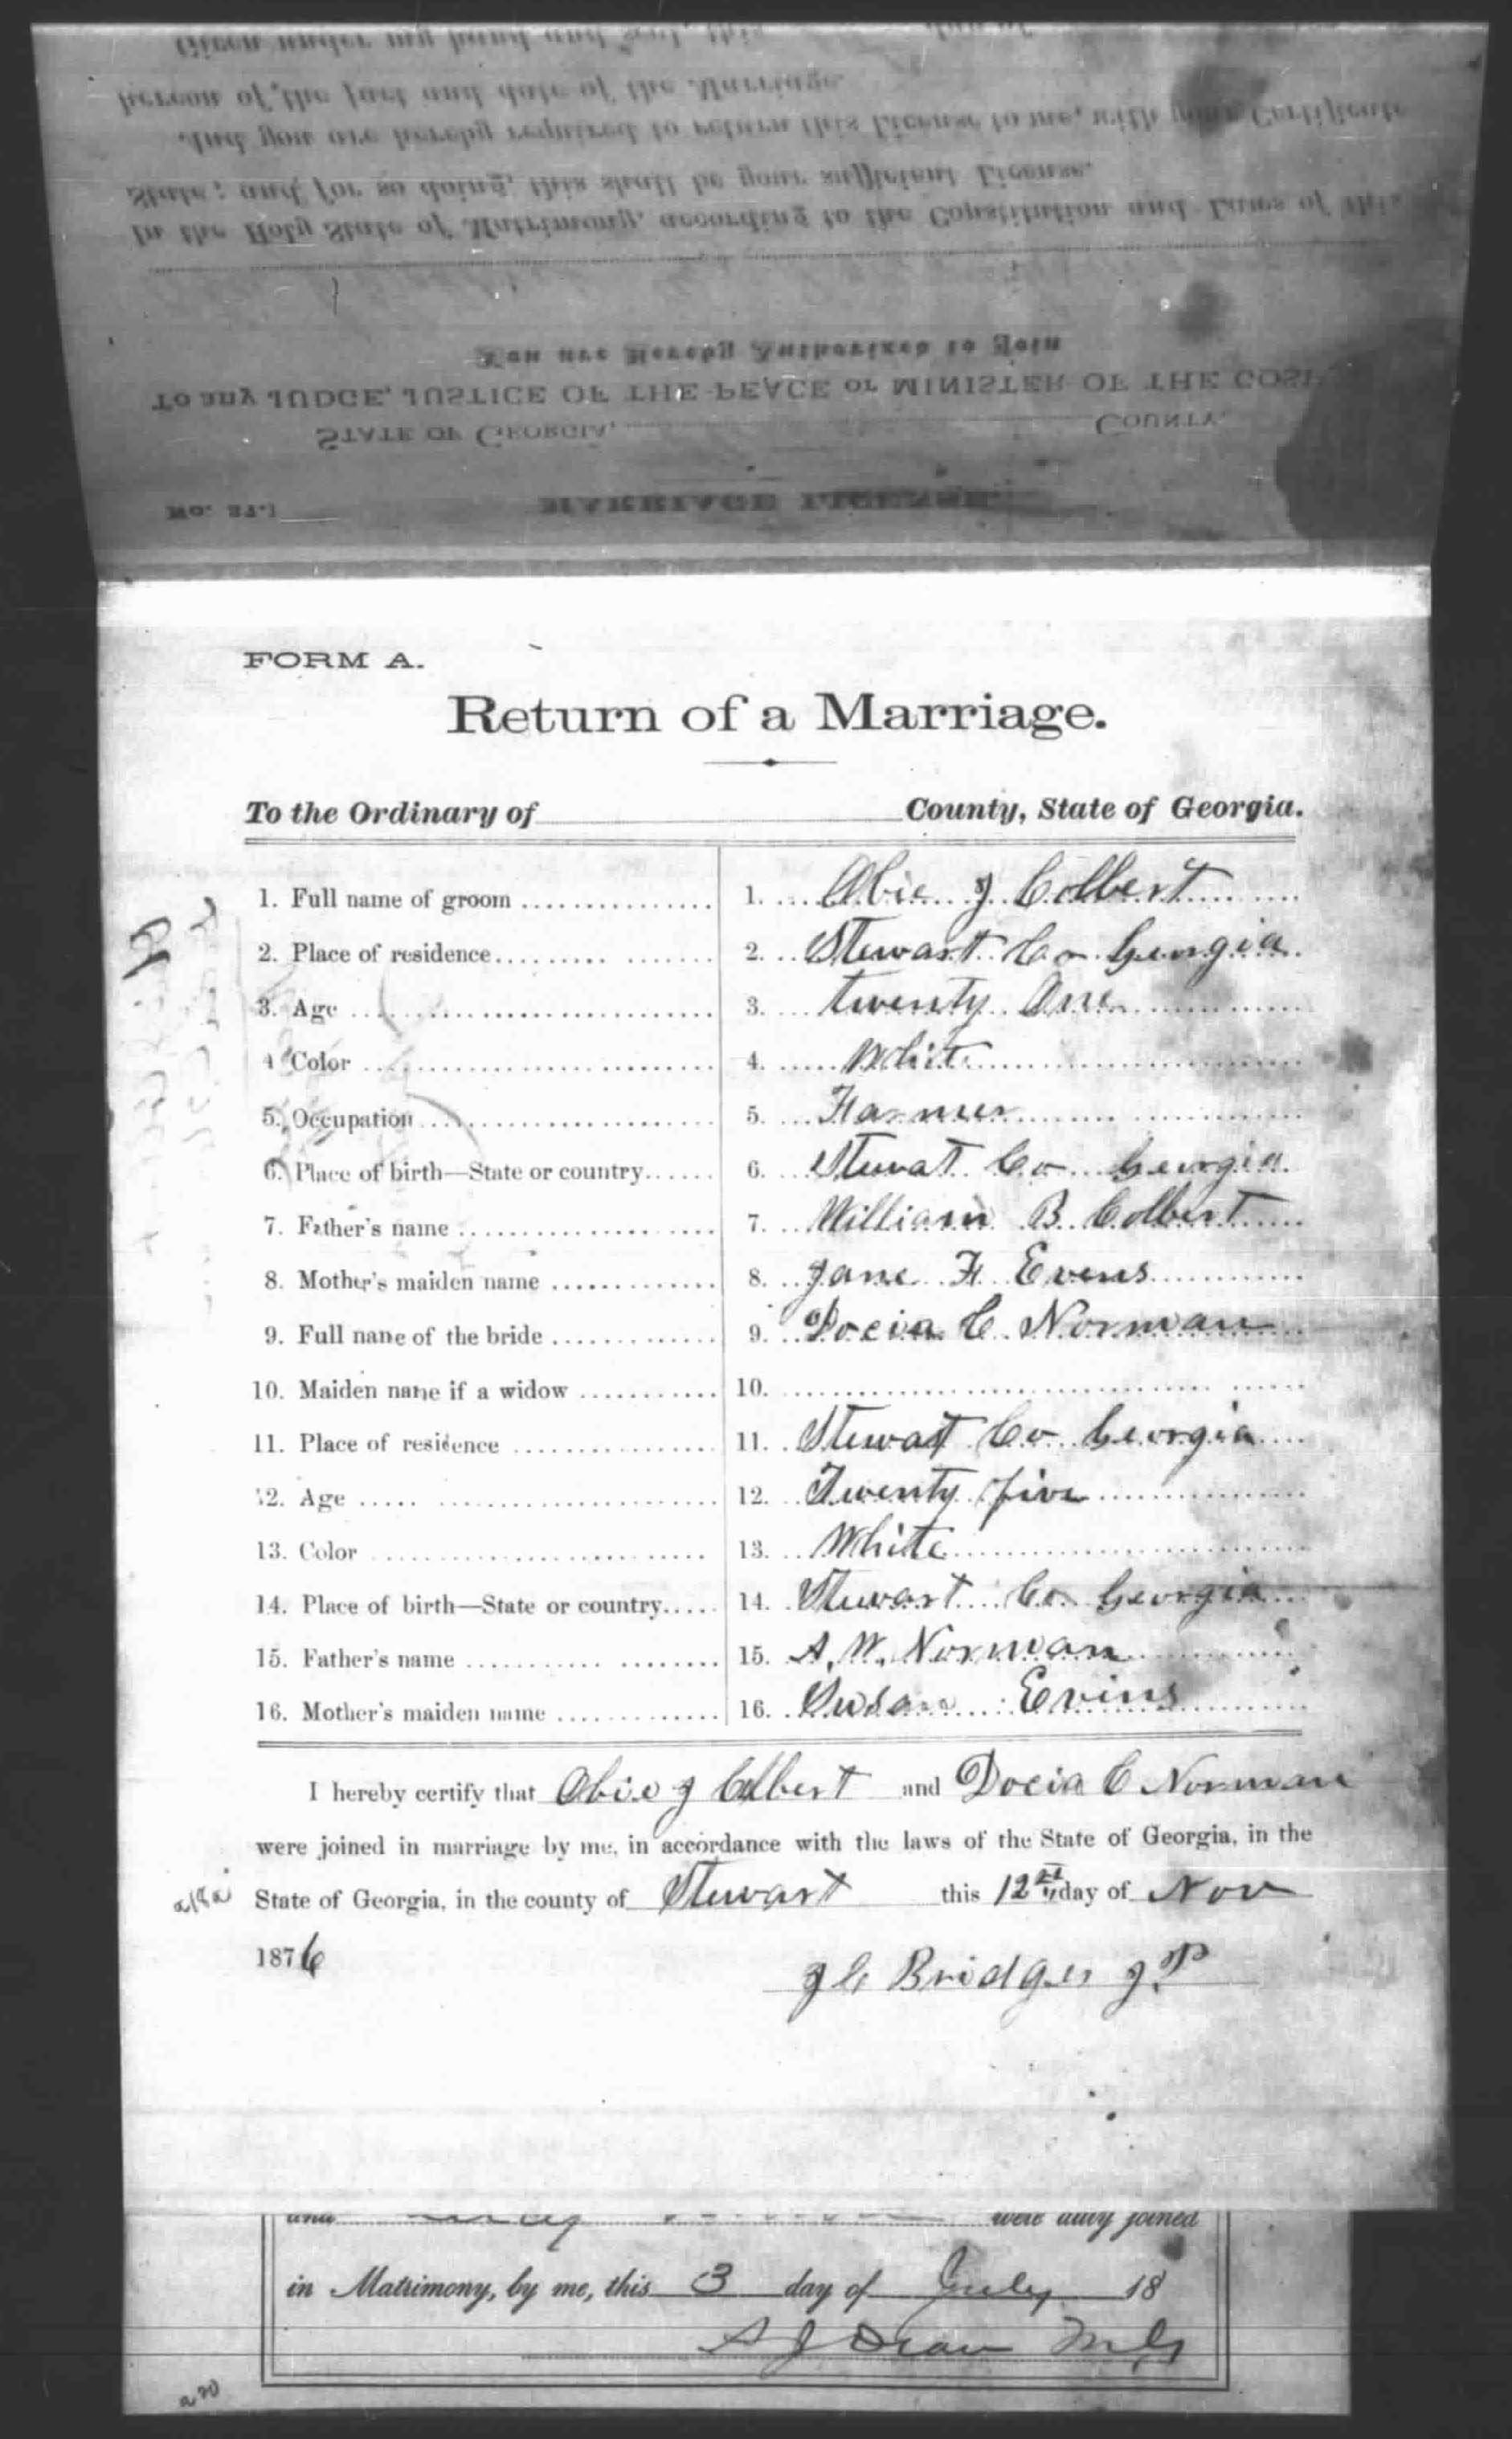 Given under my hand and Seal, this day of
hereon of the fact and date of the Marriage.
And you are hereby required to return this License to me, with your Certificate
State; and for so doing, this shall be your sufficient License.
In the Holy State of Matrimony, according to the Constitution and Laws of this
You are Hereby Authorized to Join
To any JUDGE, JUSTICE OF THE PEACE or MINISTER OF THE GOSP
STATE OF GEORGIA, COUNTY.
MARRIAGE LICENSE.
FORM A.
Return of a Marriage.
To the Ordinary of County, State of Georgia.
1. Full name of groom 1. Obie J Colbert
2. Place of residence 2. Stewart Co Georgia
3. Age 3. twenty One
4 Color 4. White
5. Occupation 5. Farmer
6. Place of birth—State or country 6. Stewat Co Georgia
7. Father's name 7. William B Colbert
8. Mother's maiden name 8. Jane F Evens
9. Full name of the bride 9. Docia C Norman
10. Maiden name if a widow 10.
11. Place of residence 11. Stewart Co Georgia
12. Age 12. Twenty five
13. Color 13. White
14. Place of birth—State or country 14. Stewart Co Georgia
15. Father's name 15. A. W. Norman
16. Mother's maiden name 16. Susan Evins
I hereby certify that Obie J Colbert and Docia C Norman
were joined in marriage by me, in accordance with the laws of the State of Georgia, in the
State of Georgia, in the county of Stewart this 12 day of Nov
1876
J C Bridges J.P
and were duly joined
in Matrimony, by me, this 3 day of July 18